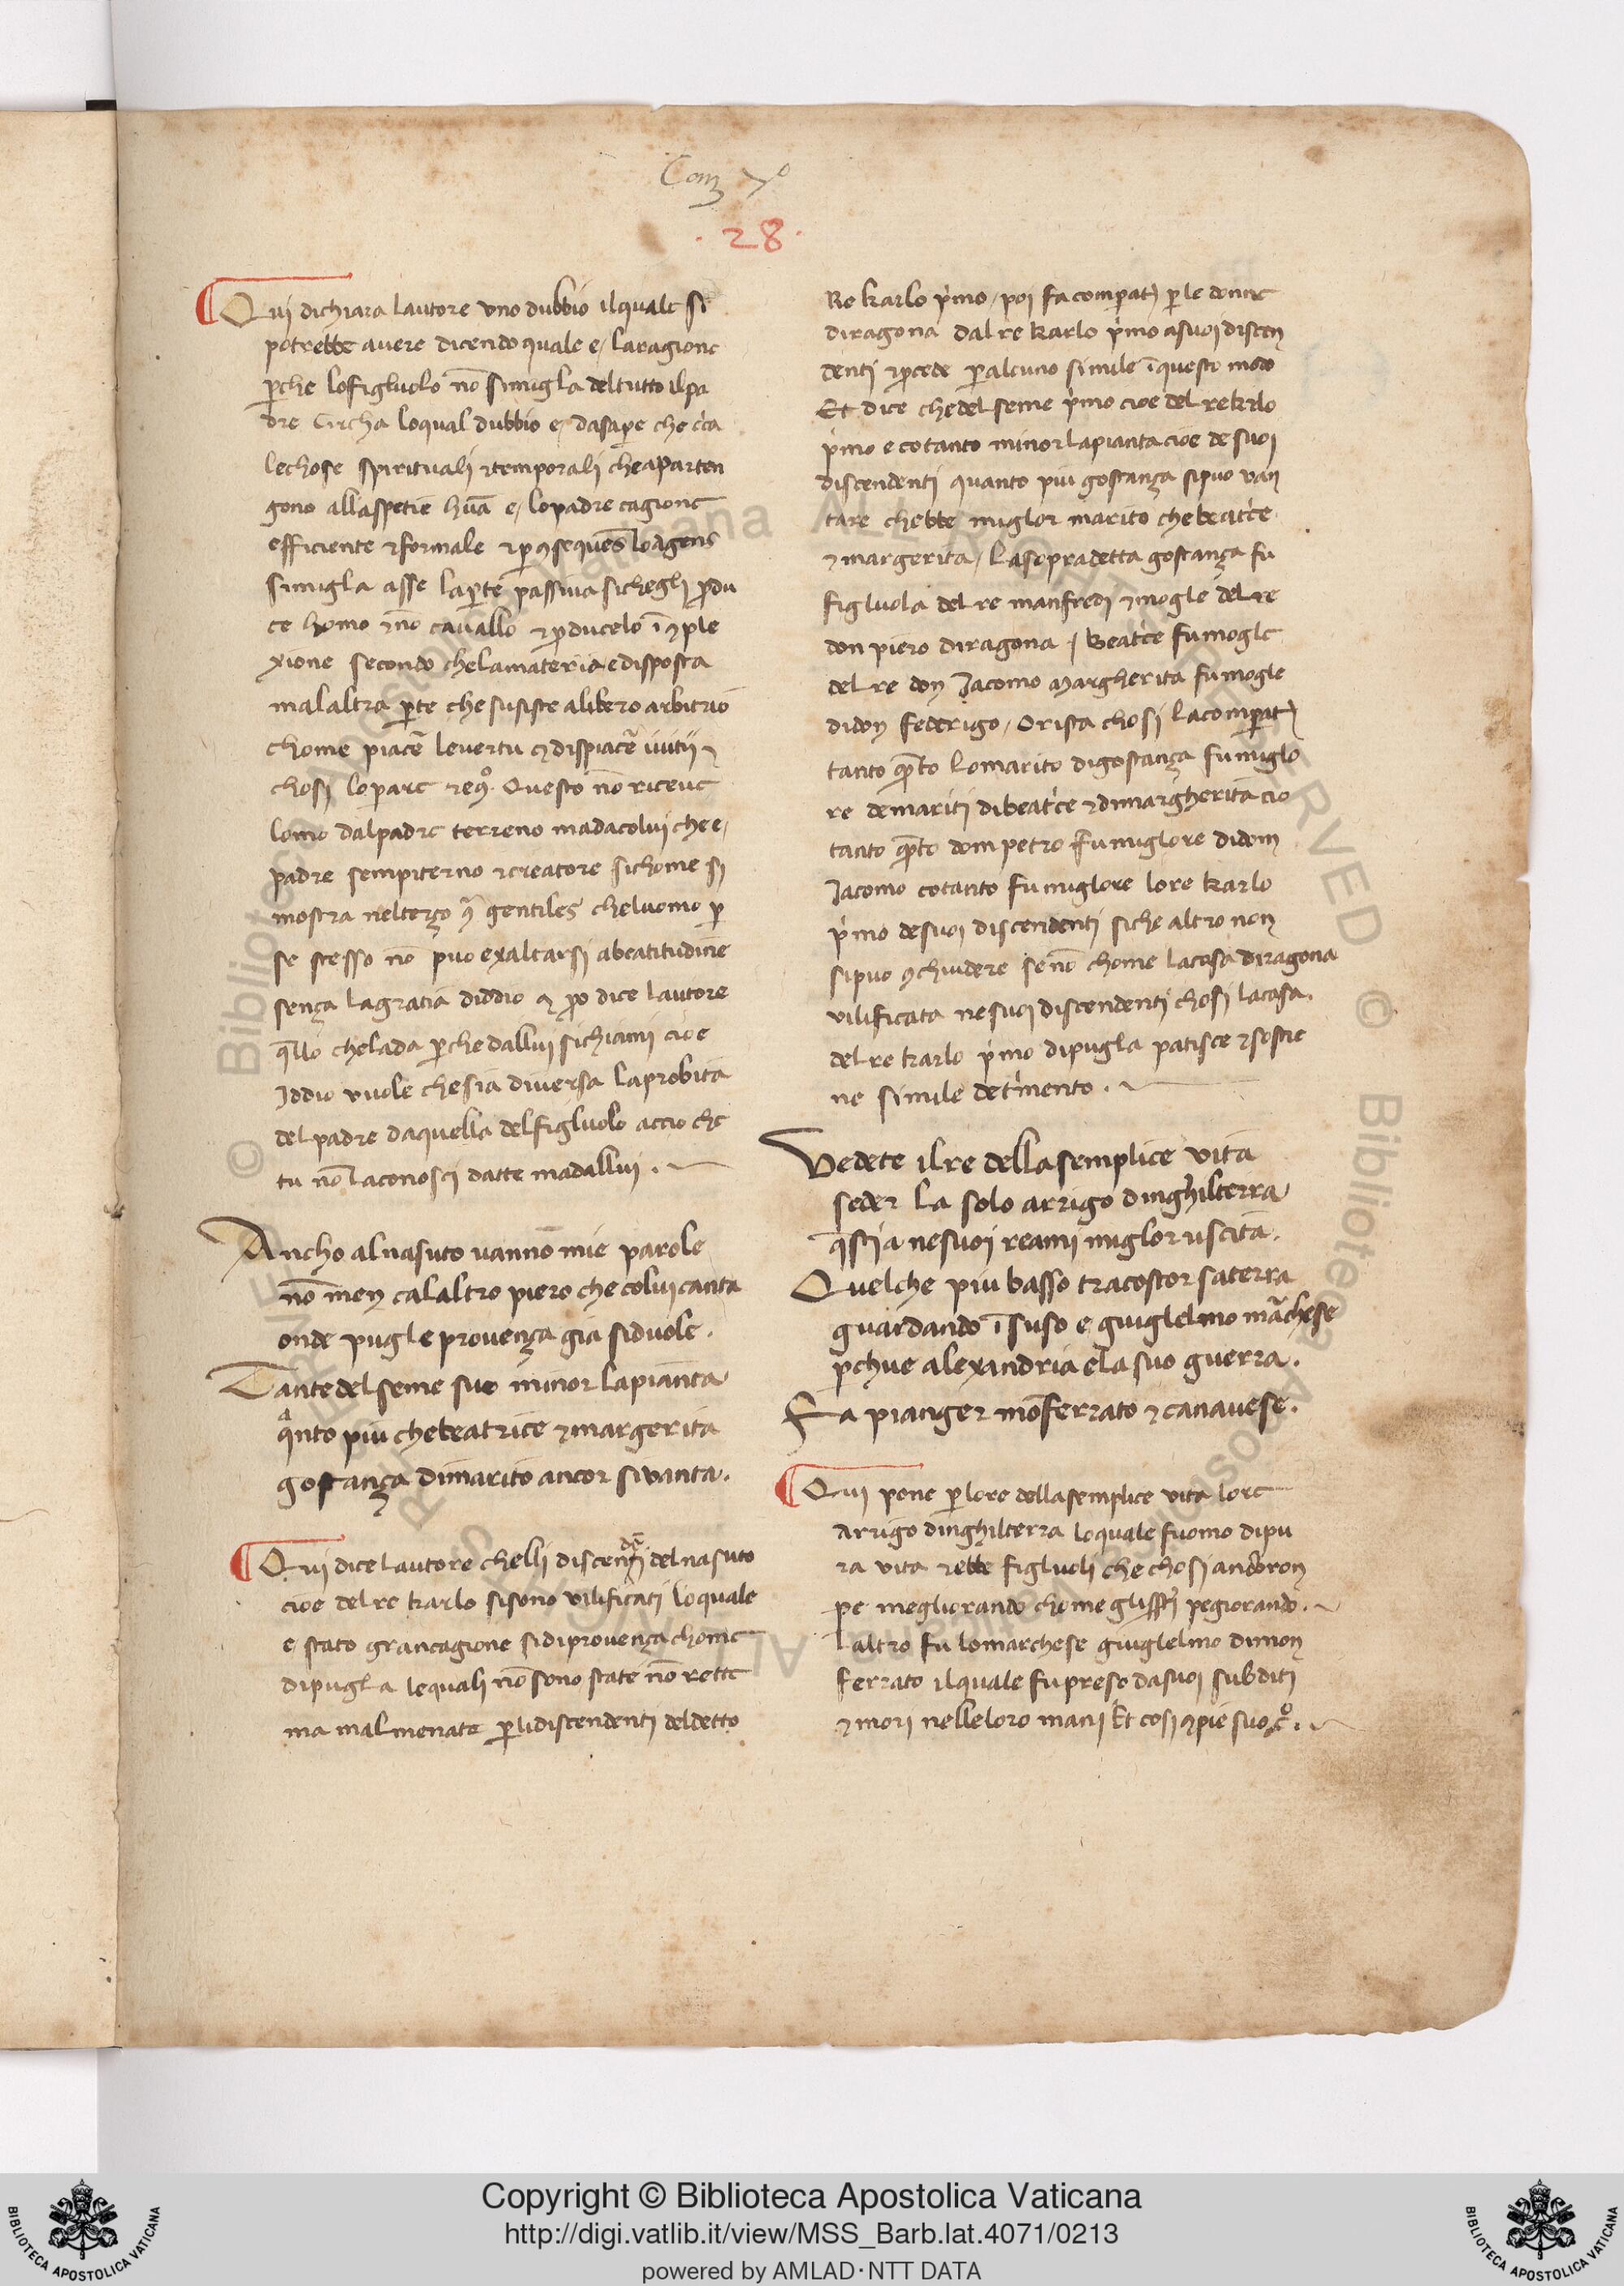 Canz 7º
· 28 ·
Qui dichiara lautore uno dubbio ilquale si
potrebbe avere dicendo quale e, laragione
ꝑche lofigluolo nō simigla deltutto ilpa
dre Circha loqual dubbio e, dasaꝑe che c'ca
lechose spirituali ⁊temporali cheaparten
gono allaspetie hūā e, lopadre cagione
efficiente ⁊formale ⁊ꝑ ꝯsequēs loagens
simigla asse laꝑte passiva sichegli ꝓdu
ce homo ⁊nō cavallo ⁊ꝓducelo ī ꝯple
xione secondo chelamateria edisposta
malaltra ꝑte che susiste alibero arbitrio
chome piacē levertu ⁊dispiacē ivitij ⁊
chosi loparc ⁊eꝯ. Questo nō riceve
lomo dalpadre terreno madacolui che e,
padre sempiterno ⁊creatore sichome si
mostra nelterço ꝯ gentiles cheluomo ꝑ
se stesso nō puo exaltarsi abeatitudine
sença lagratia diddio ⁊ ꝑo dice lautore
q̄llo chelada ꝑche dallui sichiami cioe
Iddio vuole chesia diversa laprobita
del padre daquella delfigluolo accio che
tu nō laconosci datte madallui .
Ancho alnasuto vanno mie parole
nō men calaltro piero che colui canta
onde pugl e provença gia siduole .
Tante del seme suo minor lapianta
qͣnto piu chebeatrice ⁊margerita
gostança dimarito ancor sivanta .
Qui dice lautore chelli discendēti del nasuto
cioe del re karlo sisono vilificati loquale
e stato grancagione sidiprovença chome
dipugla lequali nō sono state nō rette
ma malmenate ꝑ lidiscendenti deldetto
Re karlo p'mo, poi fa compat͛ ꝑ le donne
diragona dal re karlo p'mo asuoi discen
denti ⁊ꝓcede ꝑ alcuno simile ī questo modo
Et dice chedel seme p'mo cioe del re krlo
p'mo e cotanto minor lapianta cioe desuoi
discendenti quanto piu gostança sipuo van
tare chebbe miglor marito che beat'ce
⁊ margerita, Lasopradetta gostança fu
figluola del re manfredi ⁊mogle del re
don piero diragona, Beat'ce fu mogle
del re don Jacomo Margherita fu mogle
didon federigo, Orista chosi lacompat͛
tanto q̄to lomarito digostança fu miglo
re demariti dibeat'ce ⁊dimargherita cio
tanto q̄to dom petro fu miglore didom
Jacomo cotanto fu miglore lore karlo
p'mo desuoi discendenti siche altro non
sipuo ꝯchiudere se nō chome lacasa diragona
vilificata nesuoi discendenti chosi lacasa.
del re karlo p'mo dipugla patisce ⁊sostie
ne simile det'mento .
Vedete il re della semplice vita
seder la solo arrigo dinghilterra
q̄sti a nesuoi reami miglor uscita .
Quelche piu basso tracostor saterra
guardando ī suso e guiglelmo mͣchese
ꝑchue alexandria ela suo guerra .
Fa pianger mōferrato ⁊ canavese .
Qui pone ꝑ lore dellasemplice vita lore
Arrigo dinghilterra loquale fuomo dipu
ra vita ⁊ebbe figluoli che chosi andoron
pe megliorando chome glistī pegiorando .
Laltro fu lomarchese guiglelmo dimon
ferrato ilquale fu preso dasuoi subditi
⁊mori nelleloro mani Et cosi ꝯpie suo cͦ .